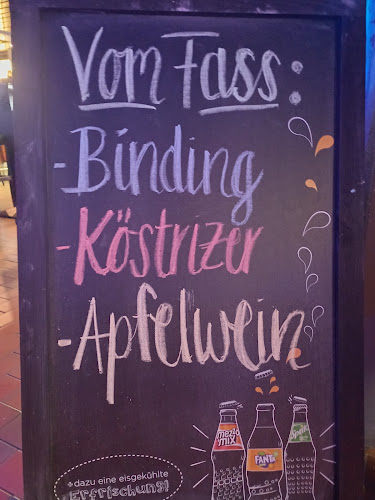 Vom Fass:
-Binding
-Köstrizer
-Apfelwein
mezzo
mix
FANTA
Sprite
+dazu eine eisgekühlte
Erfrischung!